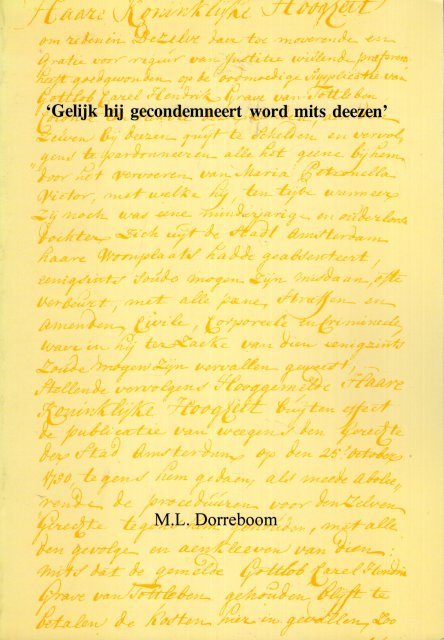 Haare Koninklijke Hoogheit
om redenen Dezelve daar toe moverende en
Gratie voor rigeur van Justitie willende prefereeren
heeft goedgevonden op de ootmoedige Supplicatie van
Gottlob Carel Hendrik Grave van Tottleben
‘Gelijk hij gecondemneert word mits deezen’
Zelven bij deezen quijt te Schelden en vervol-
gens te pardonneeren alle het geene bij hem
door het vervoeren van Maria Petronella
Victor, met welke hij, ten tijde wanneer
Zij noch was eene minderjarige en ouderloose
Dochter Zich uijt de Stadt Amsterdam
haare Woonplaats hadde geabsenteert,
eenigsints Soude mogen Zijn misdaan, ofte
verbeurt, met alle pane, Straffen en
Amenden, Civile, Corporeele en Crimineele,
waer in hij ter Zaeke van dien eenigzints
Zoude mogen Zijn vervallen geweest,
Stellende vervolgens Hooggemelde Haare
Koninklijke Hoogheit buijten effect
de publicatie van weegens den Gerechte
der Stad Amsterdam op den 25 October
1750 tegens hem gedaen, als meede Abolee-
rende de procedúúren voor den Zelven
Gerechte tegens hem gehouden, met alle
den gevolge en aenkleeven van dien:
M.L. Dorreboom
mits dat de gemelde Gottlob Carel Hendrik
Grave van Tottleben gehouden blijft te
betalen de Kosten hier in gevallen, Zoo